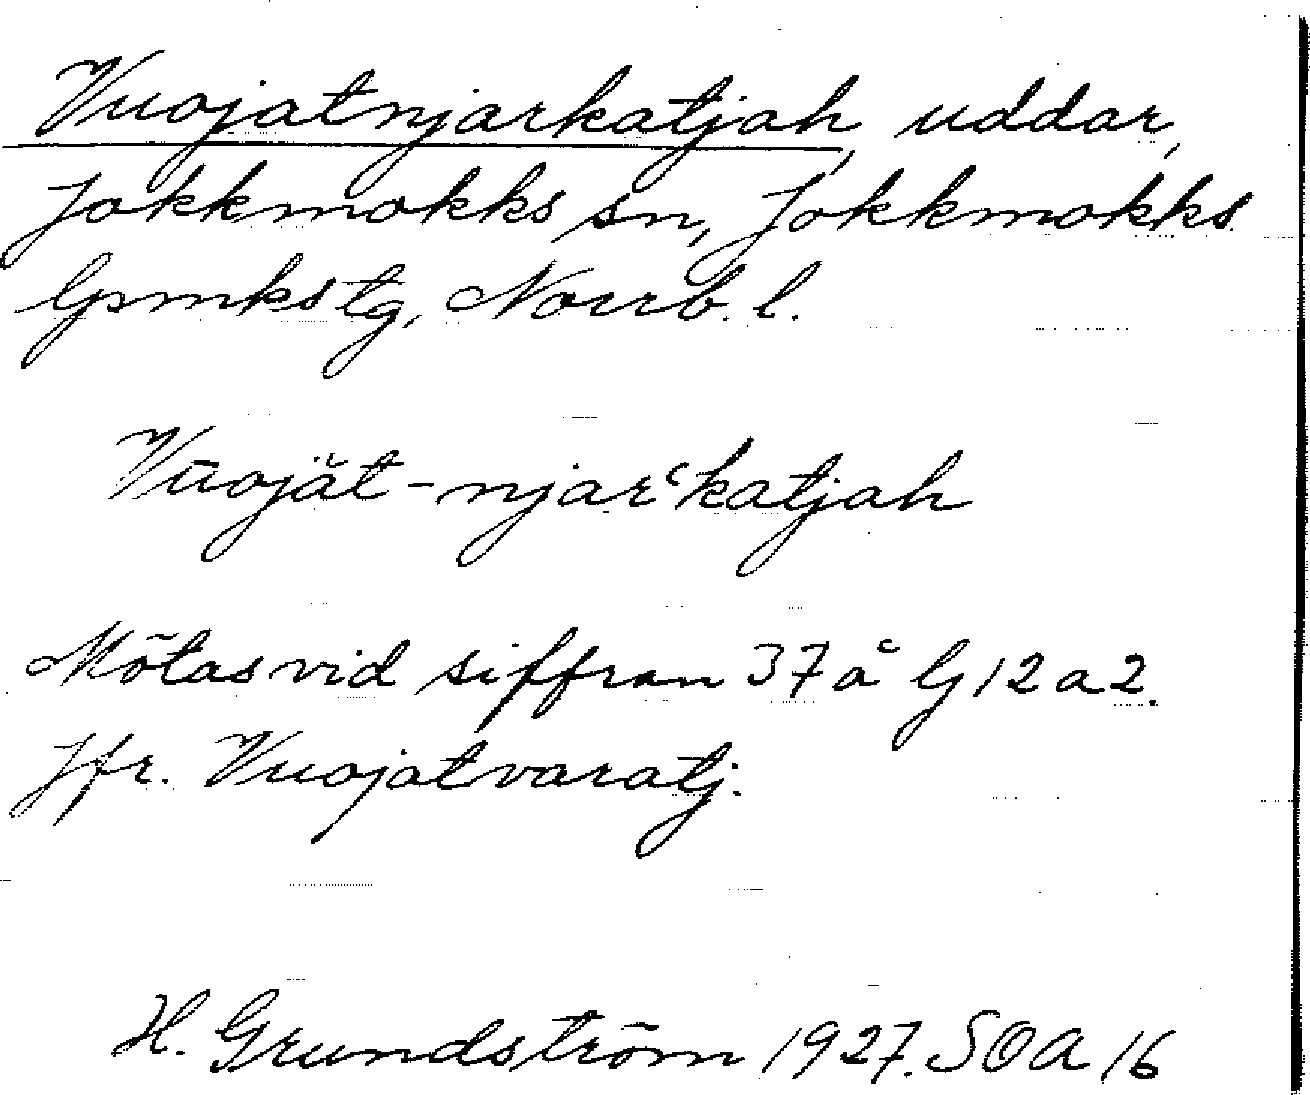 Vuojatnjarkatjah, uddar,
Jokkmokks sn, Jokkmokks
lpmkstg, Norrb. l.
Vūojăt-njarʿkatjah
Mötas vid siffran 37 å lj 12 a 2.
Jfr. Vuojatvaratj.
H. Grundström 1927. SOA 16